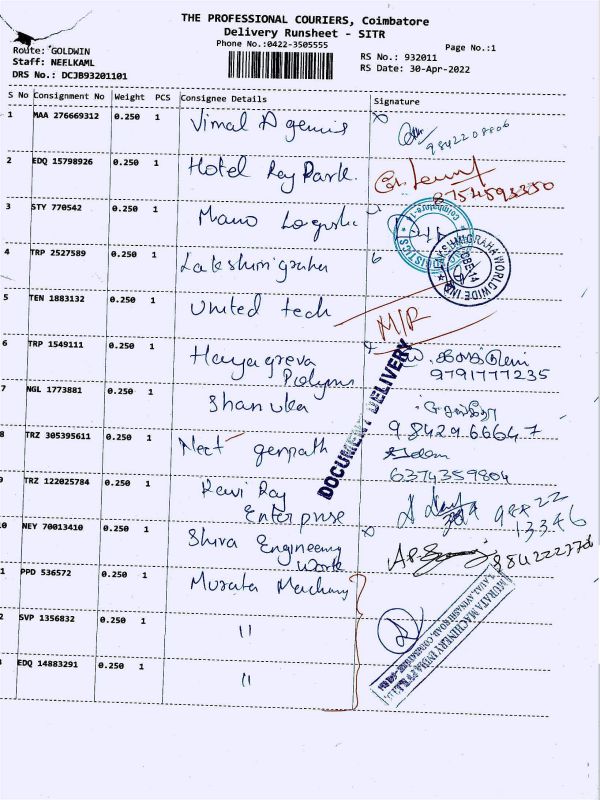 THE PROFESSIONAL COURIERS, Coimbatore
Delivery Runsheet - SITR
Phone No.:0422-3505555
Page No.:1
Route: GOLDWIN
Staff: NEELKAML
DRS No.: DCJB93201101
RS No.: 932011
RS Date: 30-Apr-2022
S No Consignment No Weight PCS Consignee Details Signature
1 MAA 276669312 0.250 1 Vimal Agencies
9842208806
2 EDQ 15798926 0.250 1 Hotel Ray Park.
8754593350
3 STY 770542 0.250 1 Mano Logistic
4 TRP 2527589 0.250 1 Lakshmigraha
LAKSHMIGRAHA WORLDWIDE INC
CBE-14
5 TEN 1883132 0.250 1 United tech
M/R
6 TRP 1549111 0.250 1 Hayagreva
Polymers
9791777235
7 NGL 1773881 0.250 1 Shanuka
9842966647
DOCUMENT DELIVERY
8 TRZ 305395611 0.250 1 Nect genpath
6374359804
9 TRZ 122025784 0.250 1 Ravi Raj
Enterprise
98422
13346
0 NEY 70013410 0.250 1 Shiva Engineering
Work
1 PPD 536572 0.250 1 Murata Machany
MURATA MACHINERY INDIA PVT. LTD.
2 SVP 1356832 0.250 1 "
3 EDQ 14883291 0.250 1 "